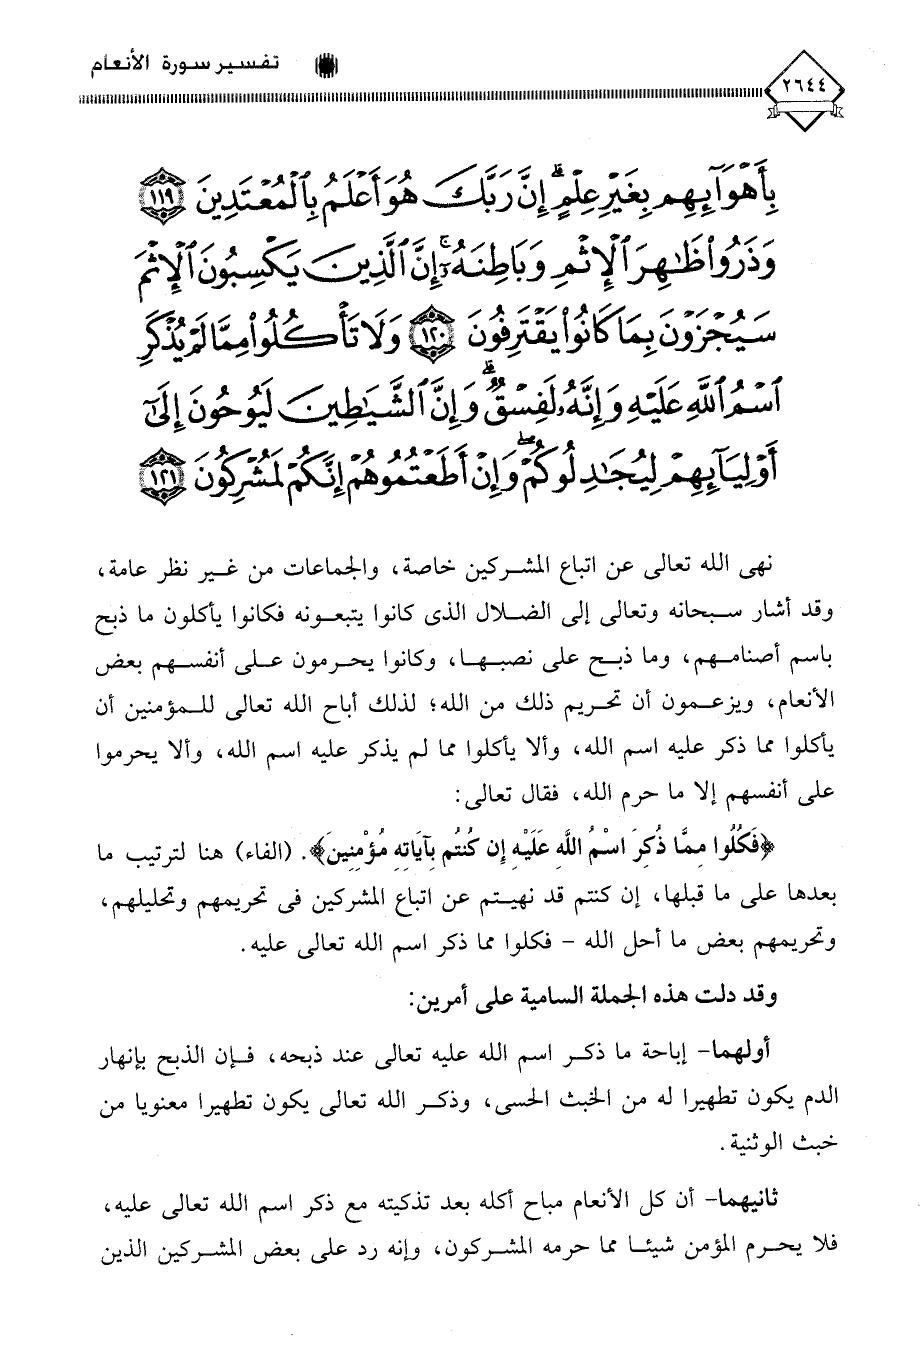 ٢٦٤٤
تفسير سورة الأنعام
بِأَهْوَآئِهِم بِغَيْرِ عِلْمٍ ۗ إِنَّ رَبَّكَ هُوَ أَعْلَمُ بِٱلْمُعْتَدِينَ ١١٩
وَذَرُوا۟ ظَٰهِرَ ٱلْإِثْمِ وَبَاطِنَهُۥٓ ۚ إِنَّ ٱلَّذِينَ يَكْسِبُونَ ٱلْإِثْمَ
سَيُجْزَوْنَ بِمَا كَانُوا۟ يَقْتَرِفُونَ ١٢٠ وَلَا تَأْكُلُوا۟ مِمَّا لَمْ يُذْكَرِ
ٱسْمُ ٱللَّهِ عَلَيْهِ وَإِنَّهُۥ لَفِسْقٌ ۗ وَإِنَّ ٱلشَّيَٰطِينَ لَيُوحُونَ إِلَىٰٓ
أَوْلِيَآئِهِمْ لِيُجَٰدِلُوكُمْ ۖ وَإِنْ أَطَعْتُمُوهُمْ إِنَّكُمْ لَمُشْرِكُونَ ١٢١
نهى الله تعالى عن اتباع المشركين خاصة، والجماعات من غير نظر عامة،
وقد أشار سبحانه وتعالى إلى الضلال الذى كانوا يتبعونه فكانوا يأكلون ما ذبح
باسم أصنامهم، وما ذبح على نصبها، وكانوا يحرمون على أنفسهم بعض
الأنعام، ويزعمون أن تحريم ذلك من الله؛ لذلك أباح الله تعالى للمؤمنين أن
يأكلوا مما ذكر عليه اسم الله، وألا يأكلوا مما لم يذكر عليه اسم الله، وألا يحرموا
على أنفسهم إلا ما حرم الله، فقال تعالى:
﴿فَكُلُوا مِمَّا ذُكِرَ اسْمُ اللَّهِ عَلَيْهِ إِن كُنتُم بِآيَاتِهِ مُؤْمِنِينَ﴾. (الفاء) هنا لترتيب ما
بعدها على ما قبلها، إن كنتم قد نهيتم عن اتباع المشركين فى تحريمهم وتحليلهم،
وتحريمهم بعض ما أحل الله - فكلوا مما ذكر اسم الله تعالى عليه.
وقد دلت هذه الجملة السامية على أمرين:
أولهما- إباحة ما ذكر اسم الله عليه تعالى عند ذبحه، فإن الذبح بإنهار
الدم يكون تطهيرا له من الخبث الحسى، وذكر الله تعالى يكون تطهيرا معنويا من
خبث الوثنية.
ثانيهما- أن كل الأنعام مباح أكله بعد تذكيته مع ذكر اسم الله تعالى عليه،
فلا يحرم المؤمن شيئا مما حرمه المشركون، وإنه رد على بعض المشركين الذين